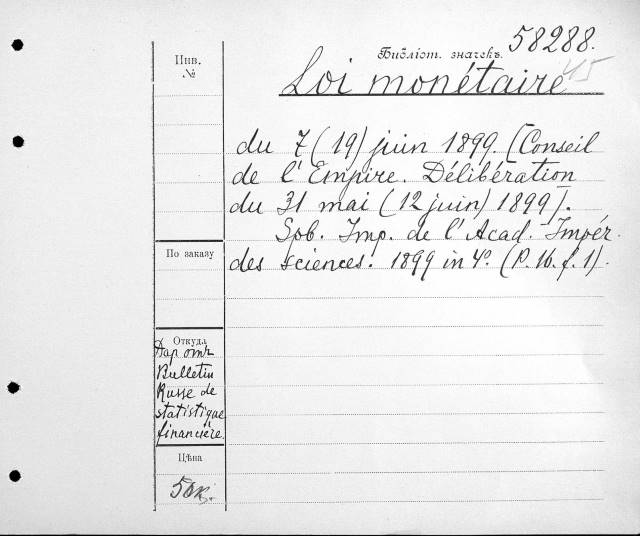 58288.
Библіот. значекъ.
45
Инв.
№
Loi monétaire
du 7 (19) juin 1899. [Conseil
de l'Empire. Délibération
du 31 mai (12 juin) 1899].
Spb. Imp. de l'Acad. Impér.
des sciences. 1899 in 4°. (P. 16. f. 1).
По заказу
Откуда
Дар отъ
Bulletin
Russe de
statistique
financière.
Цѣна
50к.